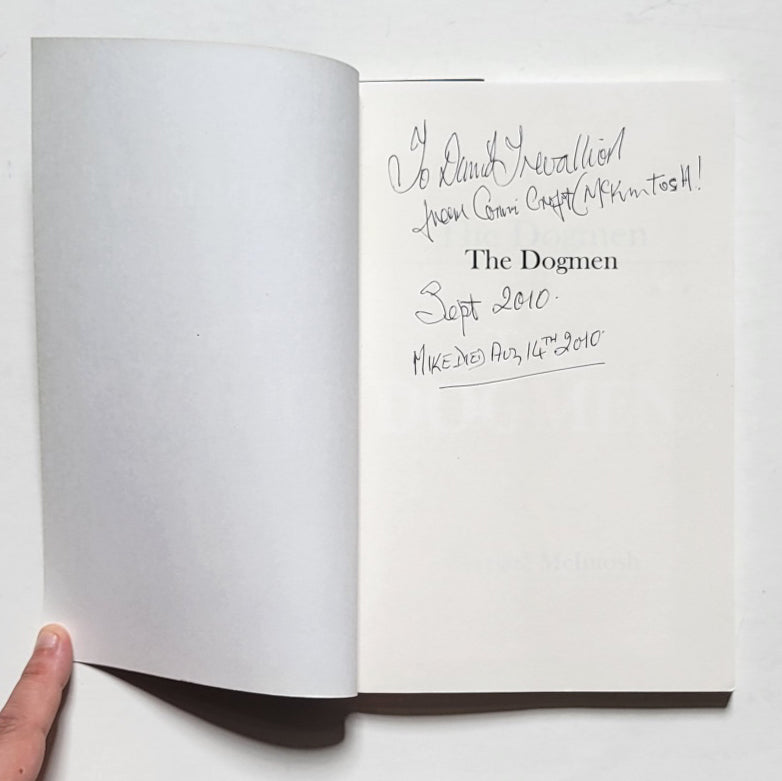 To David Trevallion
from Conni Craft (McKintosH!
The Dogmen
Sept 2010.
MIKE DIED AUG 14TH 2010.
The Dogmen
McIntosh